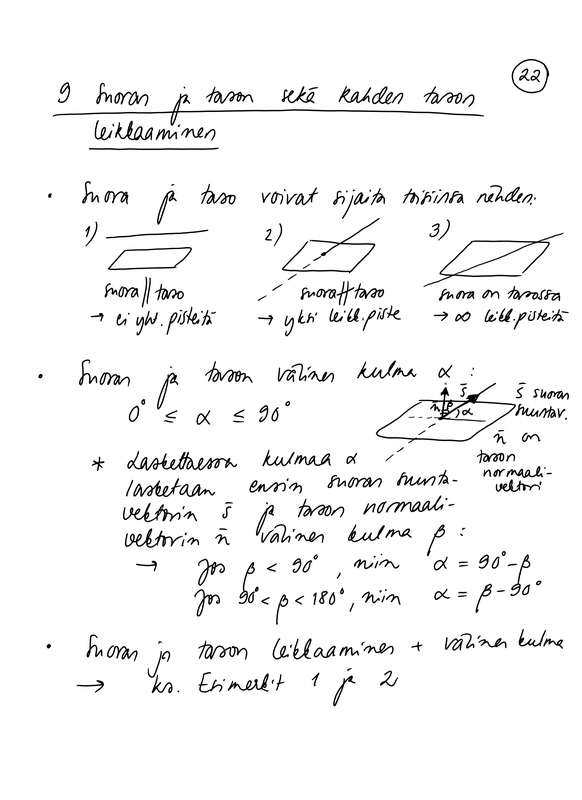 22
9 Suoran ja tason sekä kahden tason
leikkaaminen
• Suora ja taso voivat sijaita toisiinsa nähden:
1) 2) 3)
suora ∥ taso suora ∦ taso suora on tasossa
→ ei yht. pisteitä → yksi leikk.piste → ∞ leikk.pisteitä
• Suoran ja tason välinen kulma α :
0° ≤ α ≤ 90°
n̄ β s̄ α
s̄ suoran
suuntav.
n̄ on
tason
normaali-
vektori
* Laskettaessa kulmaa α
lasketaan ensin suoran suunta-
vektorin s̄ ja tason normaali-
vektorin n̄ välinen kulma β :
→ Jos β < 90°, niin α = 90° - β
Jos 90° < β < 180°, niin α = β - 90°
• Suoran ja tason leikkaaminen + välinen kulma
→ ks. Esimerkit 1 ja 2